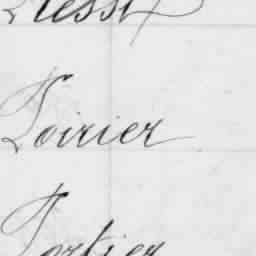 Plessi
Poirier
Portier